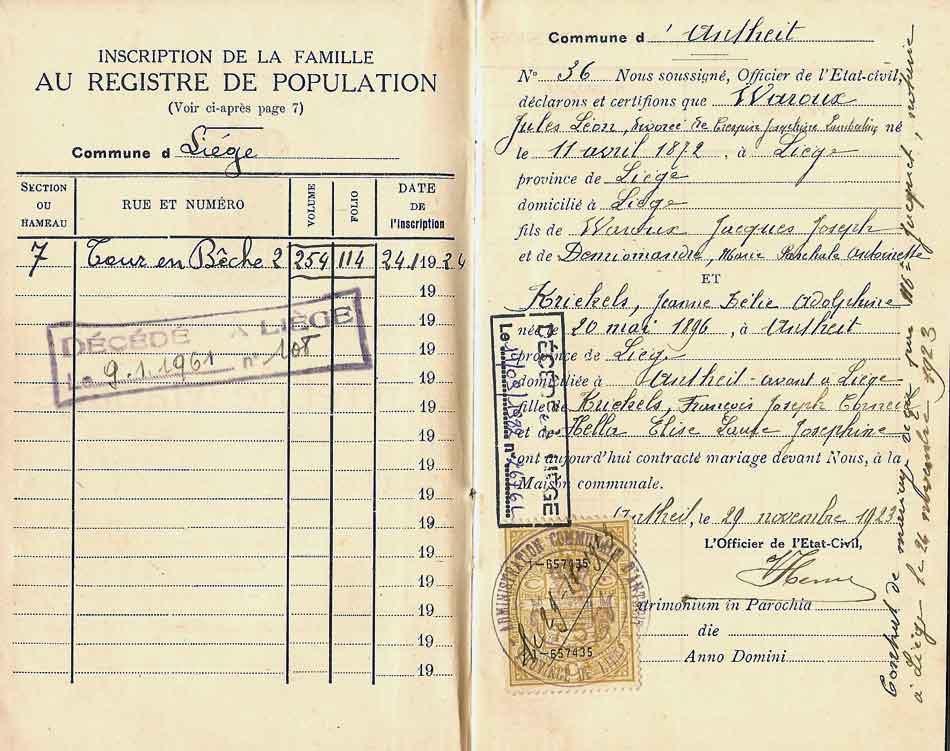 INSCRIPTION DE LA FAMILLE
AU REGISTRE DE POPULATION
(Voir ci-après page 7)
Commune d Liége
SECTION OU HAMEAU
RUE ET NUMÉRO
VOLUME
FOLIO
DATE DE l'inscription
7 Tour en Bêche 2 254 114 24.1 1924
19
19
19
19
19
19
19
19
19
19
19
DÉCÉDÉ A LIÈGE
Le 9.1.1961 n° 108
Commune d'Antheit
N° 36 Nous soussigné, Officier de l'Etat-civil,
déclarons et certifions que Waroux
Jules Léon, divorcé de Crespin Joséphine né
le 11 avril 1872, à Liége
province de Liége
domicilié à Liége
fils de Waroux Jacques Joseph
et de Marie Paschale Antoinette
ET
Krickels, Jeanne Zélie Adolphine
née le 20 mai 1896, à Antheit
province de Liége
domiciliée à Antheit avant à Liége
fille de Krickels, François Joseph
et de Hella Elise Laure Josephine
ont aujourd'hui contracté mariage devant Nous, à la
Maison communale.
Antheit, le 29 novembre 1923
L'Officier de l'Etat-Civil,
Matrimonium in Parochia
die
Anno Domini
DÉCÉDÉ LIÈGE
Le n°
ADMINISTRATION COMMUNALE D'ANTHEIT
PROVINCE DE LIÈGE
1-657435
1-657435
Contrat de mariage reçu par Me Jacquet, notaire
à Liége le 26 novembre 1923